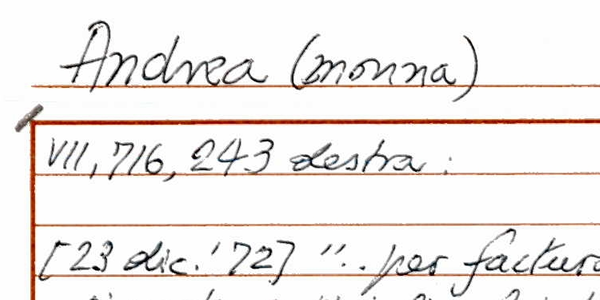 Andrea (monna)
VII, 716, 243 destra :
[23 dic. '72] ".. per factura